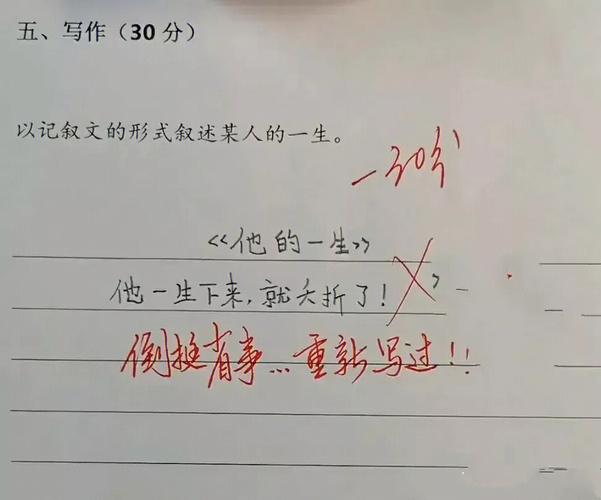 五、写作（30 分）
以记叙文的形式叙述某人的一生。
-30分
《他的一生》
他一生下来，就夭折了！
倒挺省事...重新写过！！